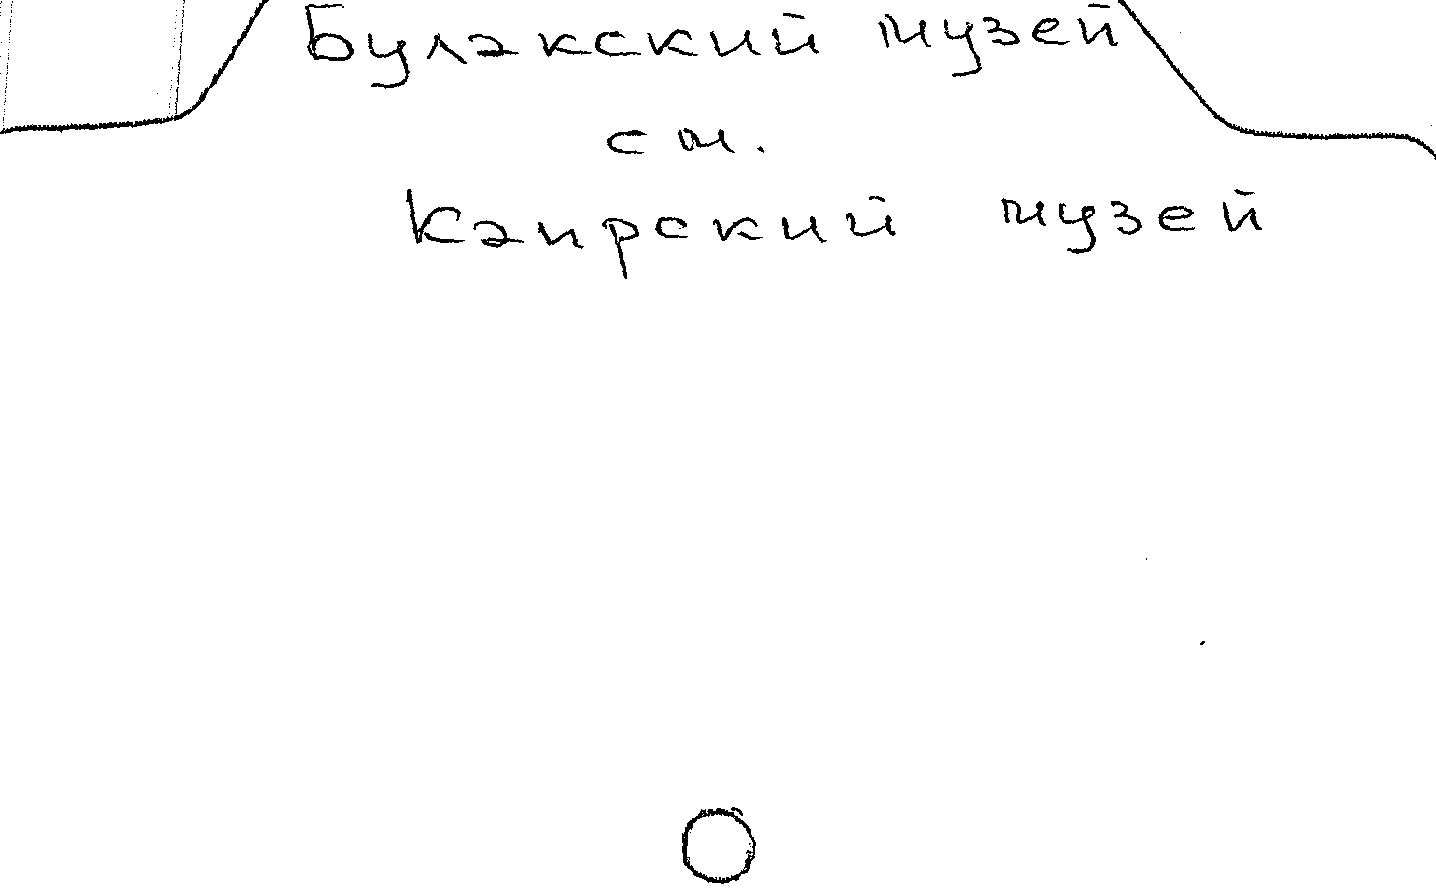 Булакский музей
см.
Каирский музей